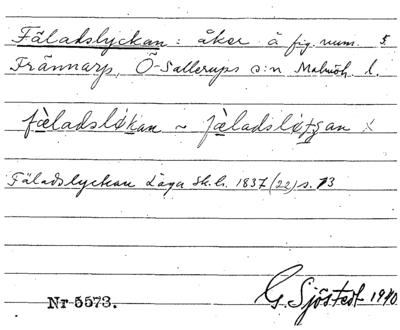 Fäladslyckan: åker å fig. num. 5
Frännarp, Ö-Sallerups s:n Malmöh. l.
fàeladsløkan ~ fàeladsløtʃan
Fäladslyckan Laga sk. h. 1837 (22) s. 13
Nr 5573.
G. Sjöstedt 1940